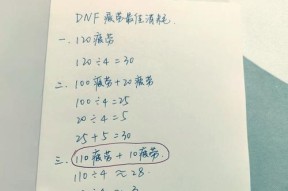 DNF 疲劳最佳消耗.
一. 120疲劳
120÷4=30
二. 100疲劳+20疲劳
100÷4=25
20÷4=5
25+5=30
三. 110疲劳+10疲劳.
110÷4≈28.